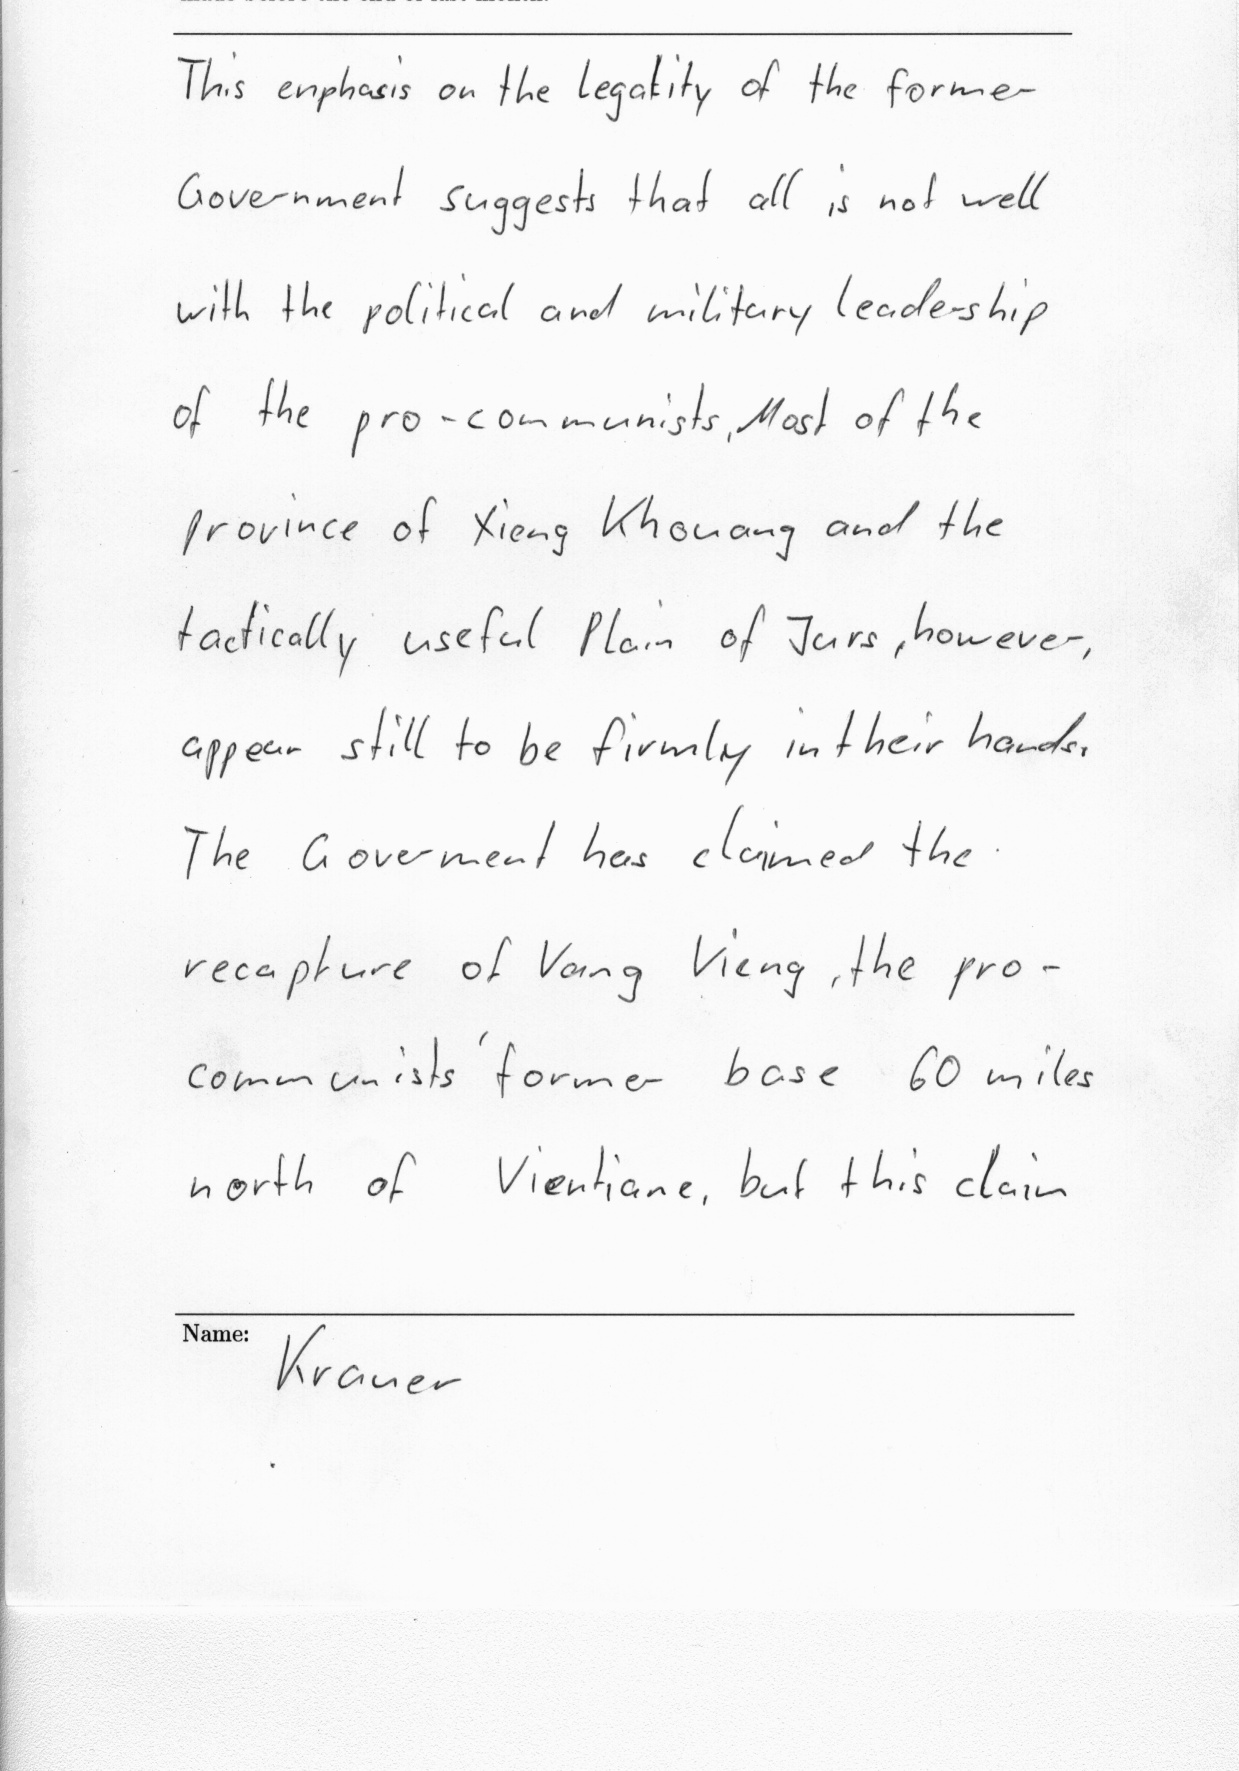 This enphasis on the legality of the former
Government suggests that all is not well
with the political and military leadership
of the pro-communists, Most of the
province of Xieng Khouang and the
tactically useful Plain of Jars, however,
appear still to be firmly in their hands.
The Goverment has claimed the
recapture of Vang Vieng, the pro-
communists' former base 60 miles
north of Vientiane, but this claim
Name:
Krauer